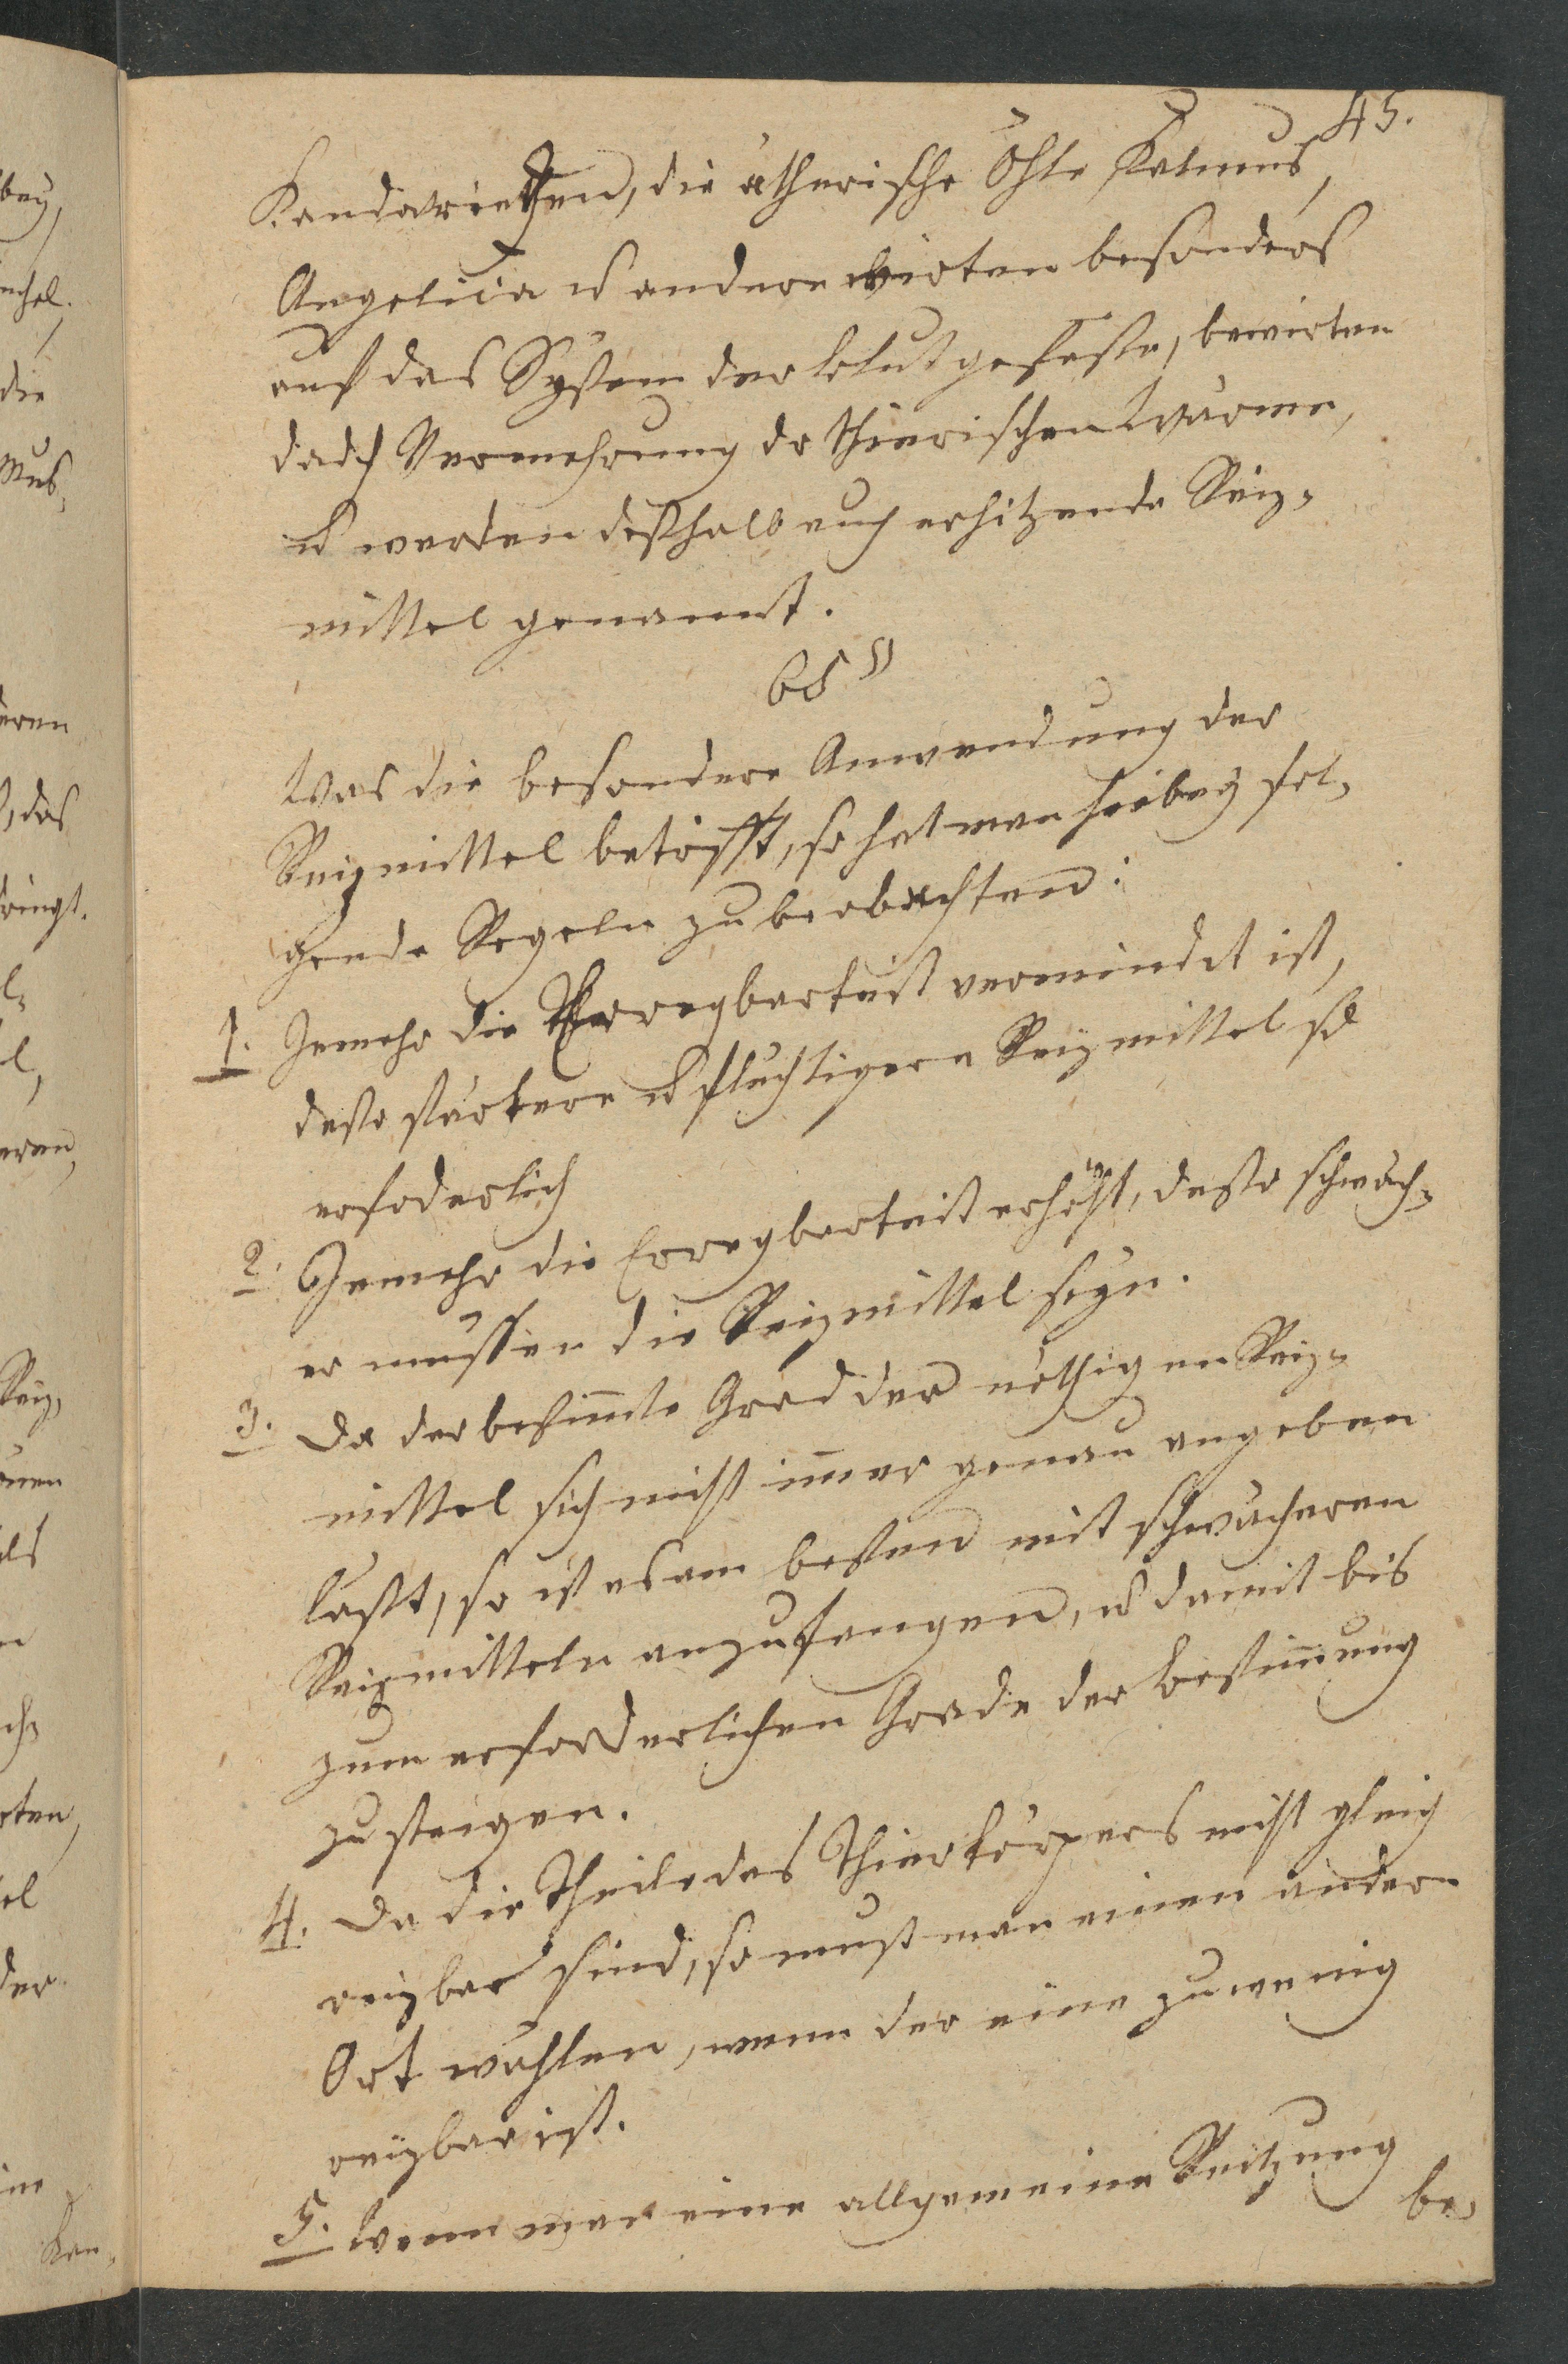 45.
Kandarietten, die ätherische Öhle, Kalmus,
Angelica u andere wirken besonders
auf das System der Blutgefaße, bewirken
dadch Vermehrung dr thierischen Wärme,
u werden deßhalb auch erhitzende Reiz-
mittel genannt.
68 §
Was die besondere Anwendung der
Reizmittel betrifft, so hat man hiebey fol-
gende Regeln zu beobachten:
1. Jemehr die Erregbarkeit vermindert ist,
desto stärkere u fluchtigere Reizmittel sd
erfoderlich
2. Jemehr die Erregbarkeit erhöht, desto schwäch-
er mussen die Reizmittel seyn.
3. Da der bestim̄te Grad der nöthigen Reiz-
mittel sich nicht im̄er genau angeben
läßt, so ist es am besten mit schwächeren
Reizmitteln anzufangen, u damit bis
zum erforderlichen Grade der Bestim̄ung
zu steigen.
4. Da die Theile des Thierkörpers nicht gleich
reizbar sind, so muß man einen andern
Ort wählen, wenn der eine zu wenig
reizbar ist.
5. Wenn man eine allgemeine Reitzung
be-